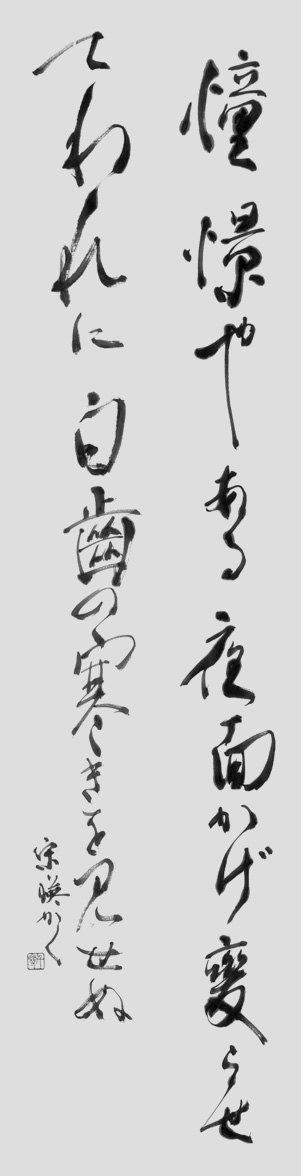 憧憬やある夜面かげ變らせ
てわれに白齒の寒きを見せぬ
宗瑛かく